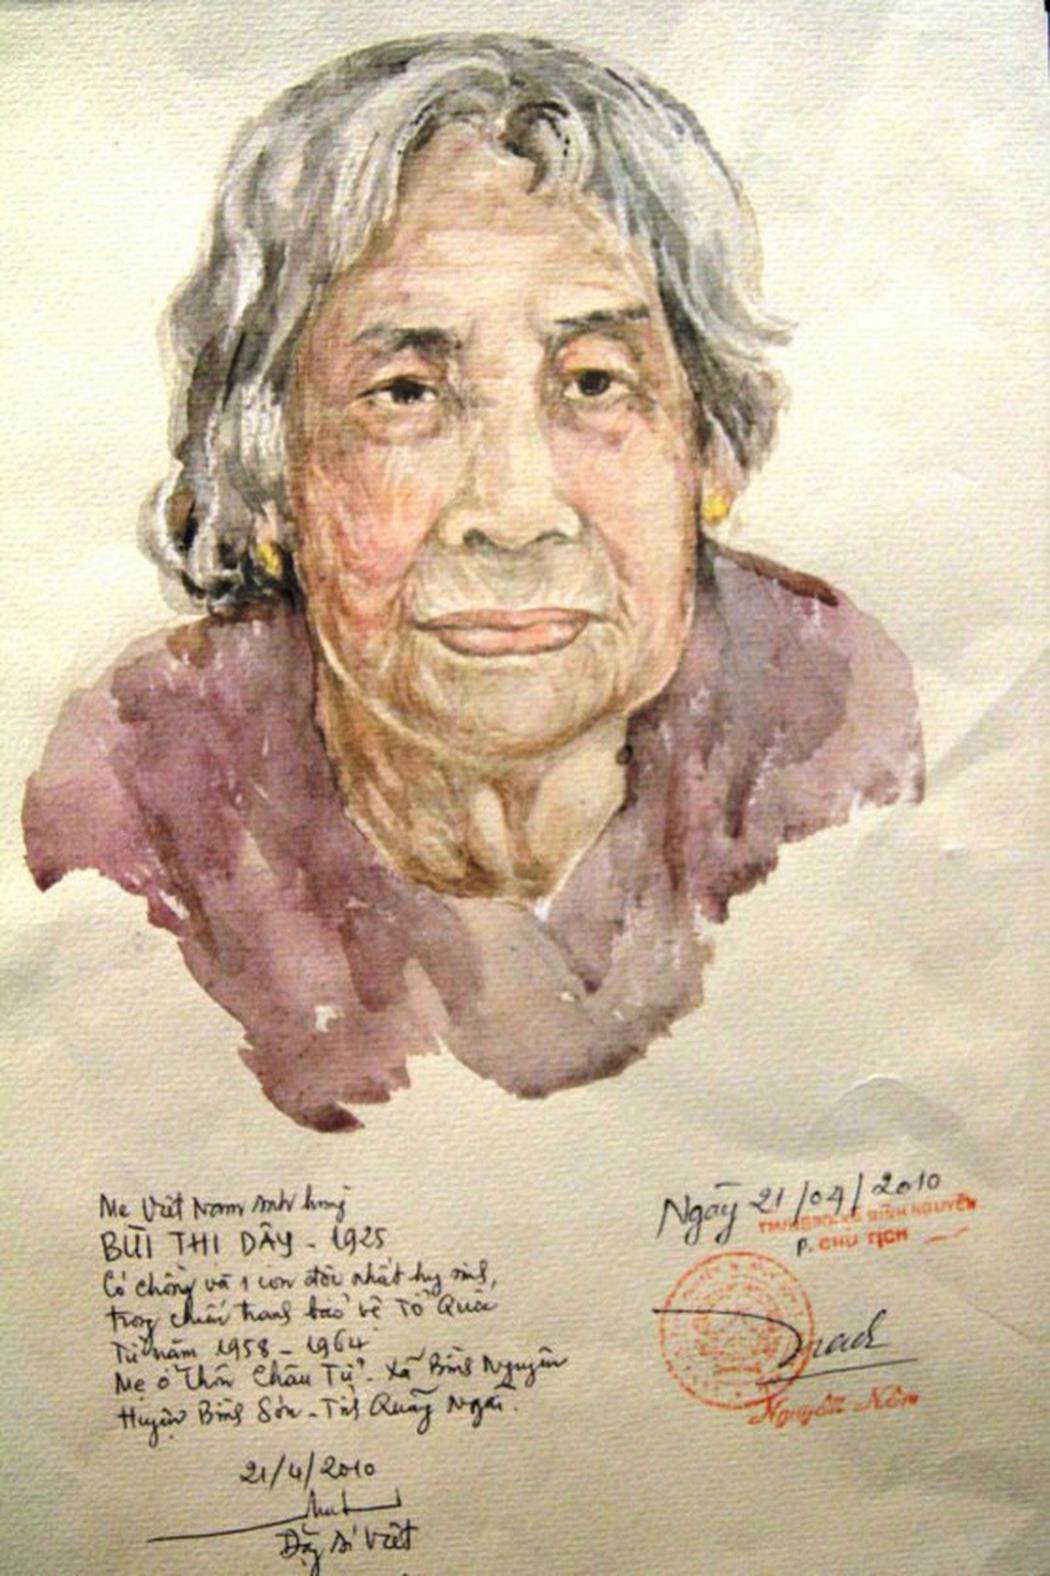 Mẹ Việt Nam anh hùng
BÙI THỊ DÂY - 1925
Có chồng và 1 con độc nhất hy sinh,
trong chiến tranh bảo vệ Tổ Quốc
Từ năm 1958 - 1964
Mẹ ở Thôn Châu Tử. Xã Bình Nguyên
Huyện Bình Sơn - Tỉnh Quảng Ngãi.
21/4/2010
Đặng Ái Việt
Ngày 21/04/2010
TM/UBND XÃ BÌNH NGUYÊN
P. CHỦ TỊCH
Nguyễn Nên